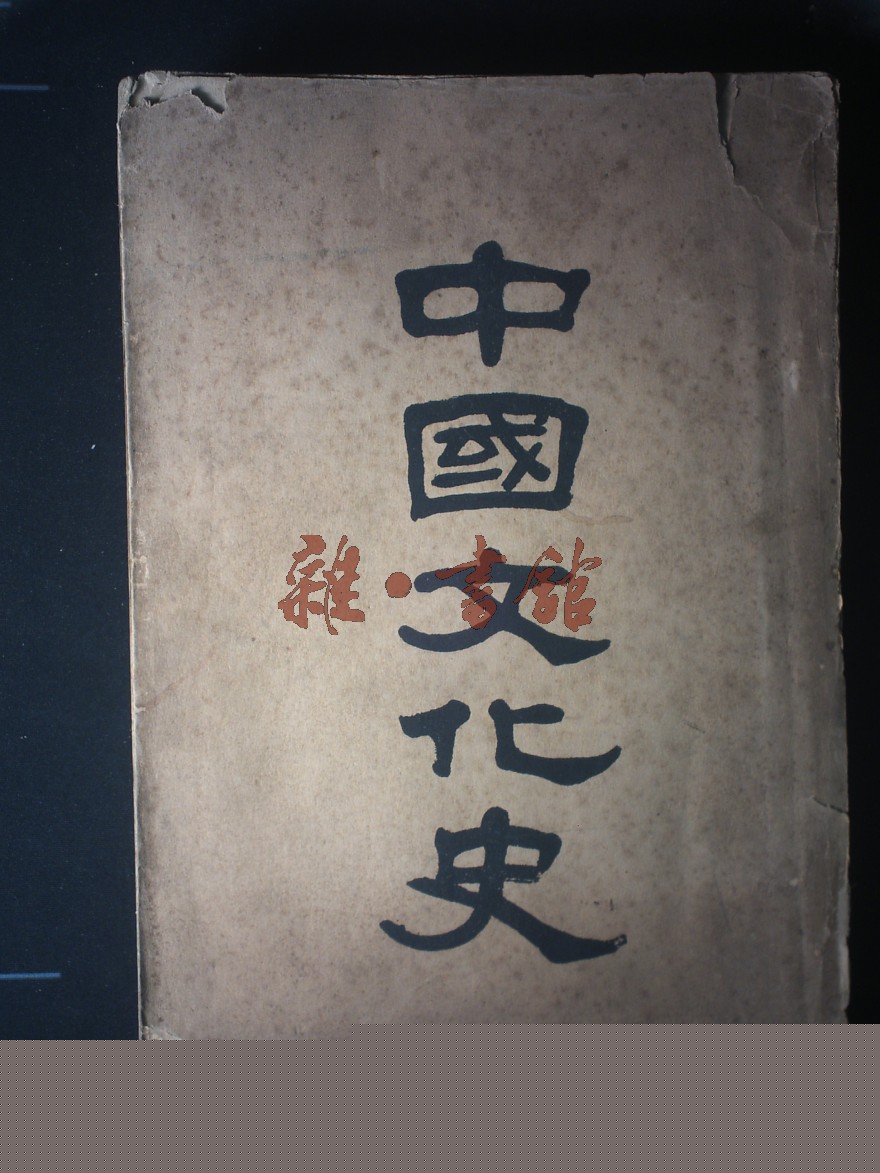 中國文化史
雜·書館